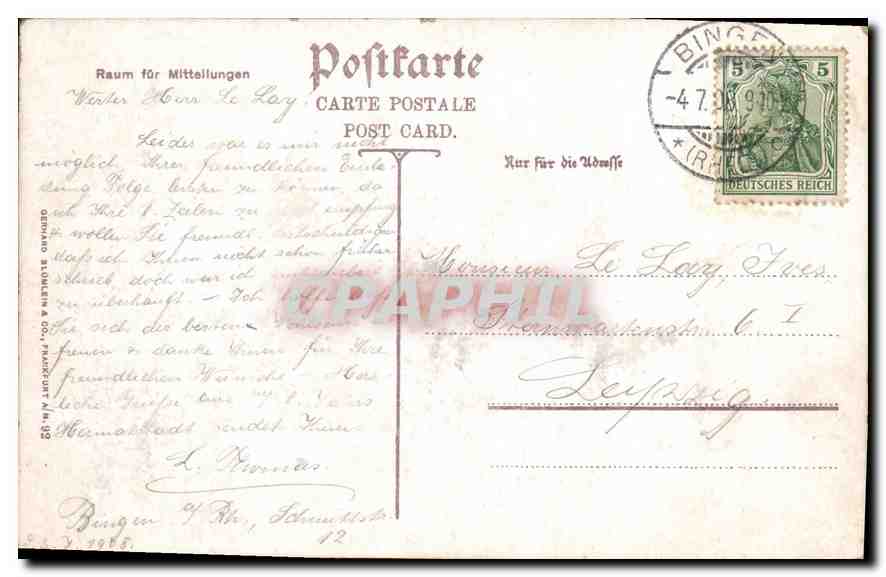 Postkarte
CARTE POSTALE
POST CARD.
Raum für Mitteilungen
Nur für die Adresse
BINGEN
-4.7.08 9-10
* (RHEIN)
5 5
DEUTSCHES REICH
GERHARD BLÜMLEIN & CO., FRANKFURT A/M. 92
Werter Herr Le Lay!
Leider war es mir nicht
möglich, Ihrer freundlichen Einla-
dung Folge leisten zu können, da
ich Ihre l. Zeilen zu empfing
& wollen Sie freundl. entschuldigen
daß ich Ihnen nicht schon früher
schrieb, doch war ich
zu überhäuft – Ich hoffe,
Sie sich der besten
freuen & danke Ihnen für Ihre
freundlichen Wünsche. Herz-
liche Grüße aus
Heimatstadt sendet Ihnen
L. Thomas
Bingen a/Rh., 
12
1908.
Monsieur Le Lay, Yves
6 I
Leipzig.
CPAPHIL